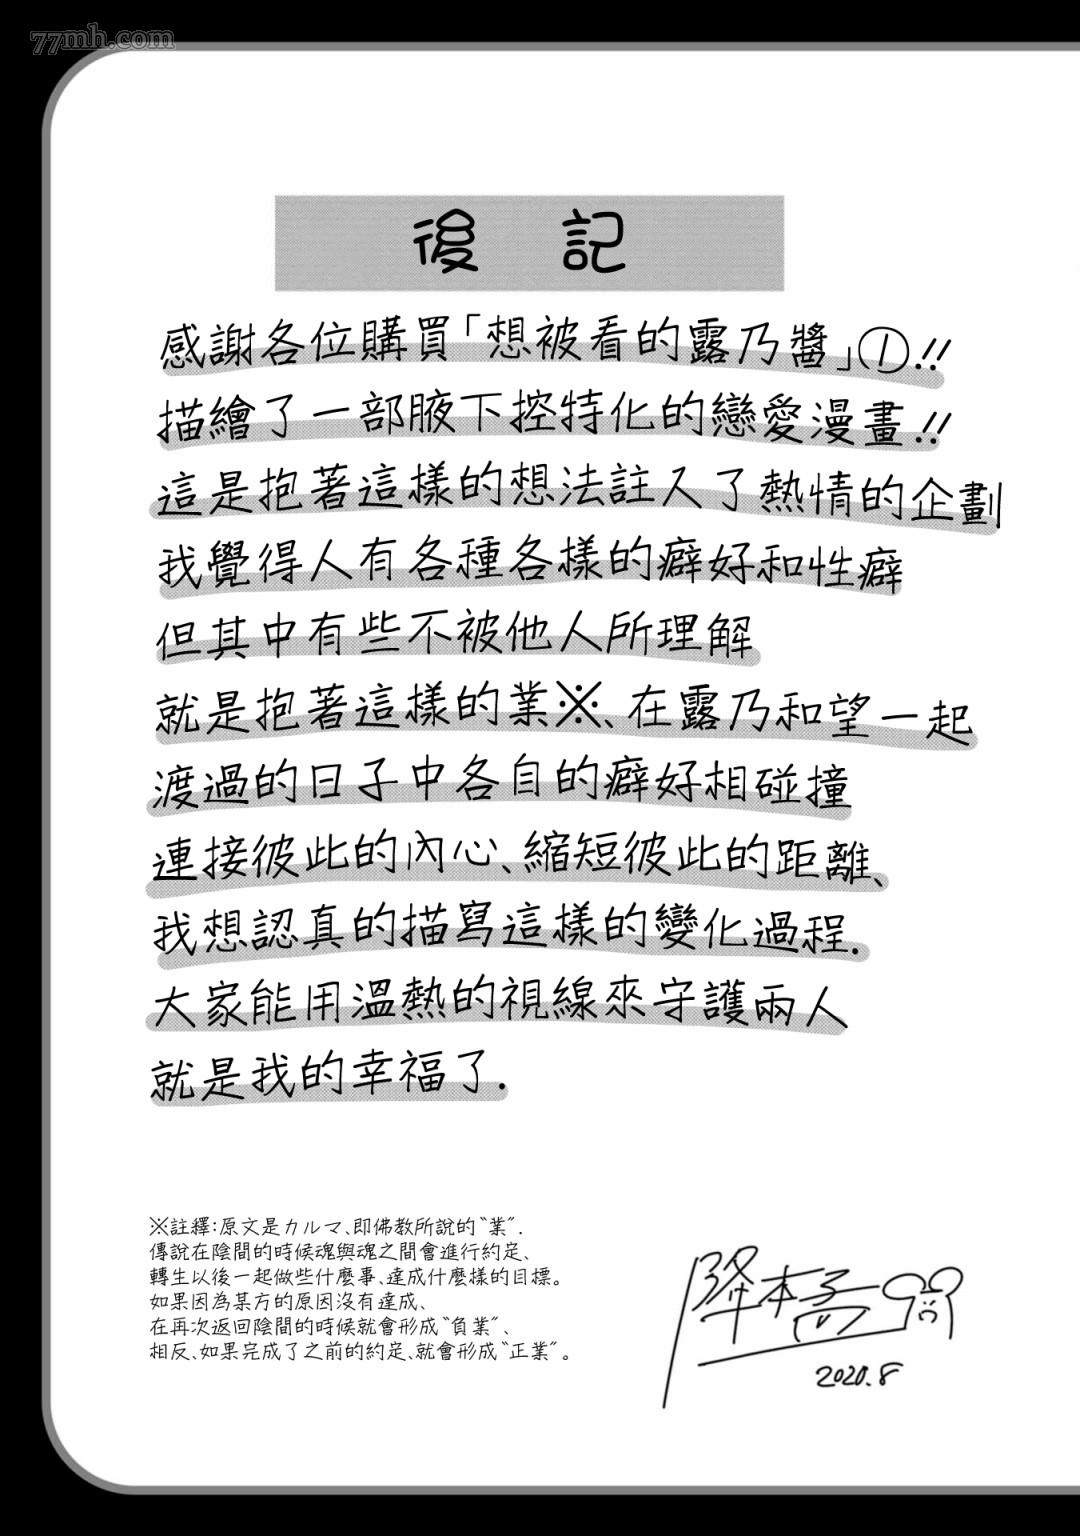 77mh.com
後記
感謝各位購買「想被看的露乃醬」①!!
描繪了一部腋下控特化的戀愛漫畫!!
這是抱著這樣的想法註入了熱情的企劃
我覺得人有各種各樣的癖好和性癖
但其中有些不被他人所理解
就是抱著這樣的業※、在露乃和望一起
渡過的日子中各自的癖好相碰撞
連接彼此的內心、縮短彼此的距離、
我想認真的描寫這樣的變化過程.
大家能用溫熱的視線來守護兩人
就是我的幸福了.
※註釋:原文是カルマ、即佛教所說的“業”.
傳說在陰間的時候魂與魂之間會進行約定、
轉生以後一起做些什麼事、達成什麼樣的目標。
如果因為某方的原因沒有達成、
在再次返回陰間的時候就會形成“負業”、
相反、如果完成了之前的約定、就會形成“正業”。
降本喬
2020.8